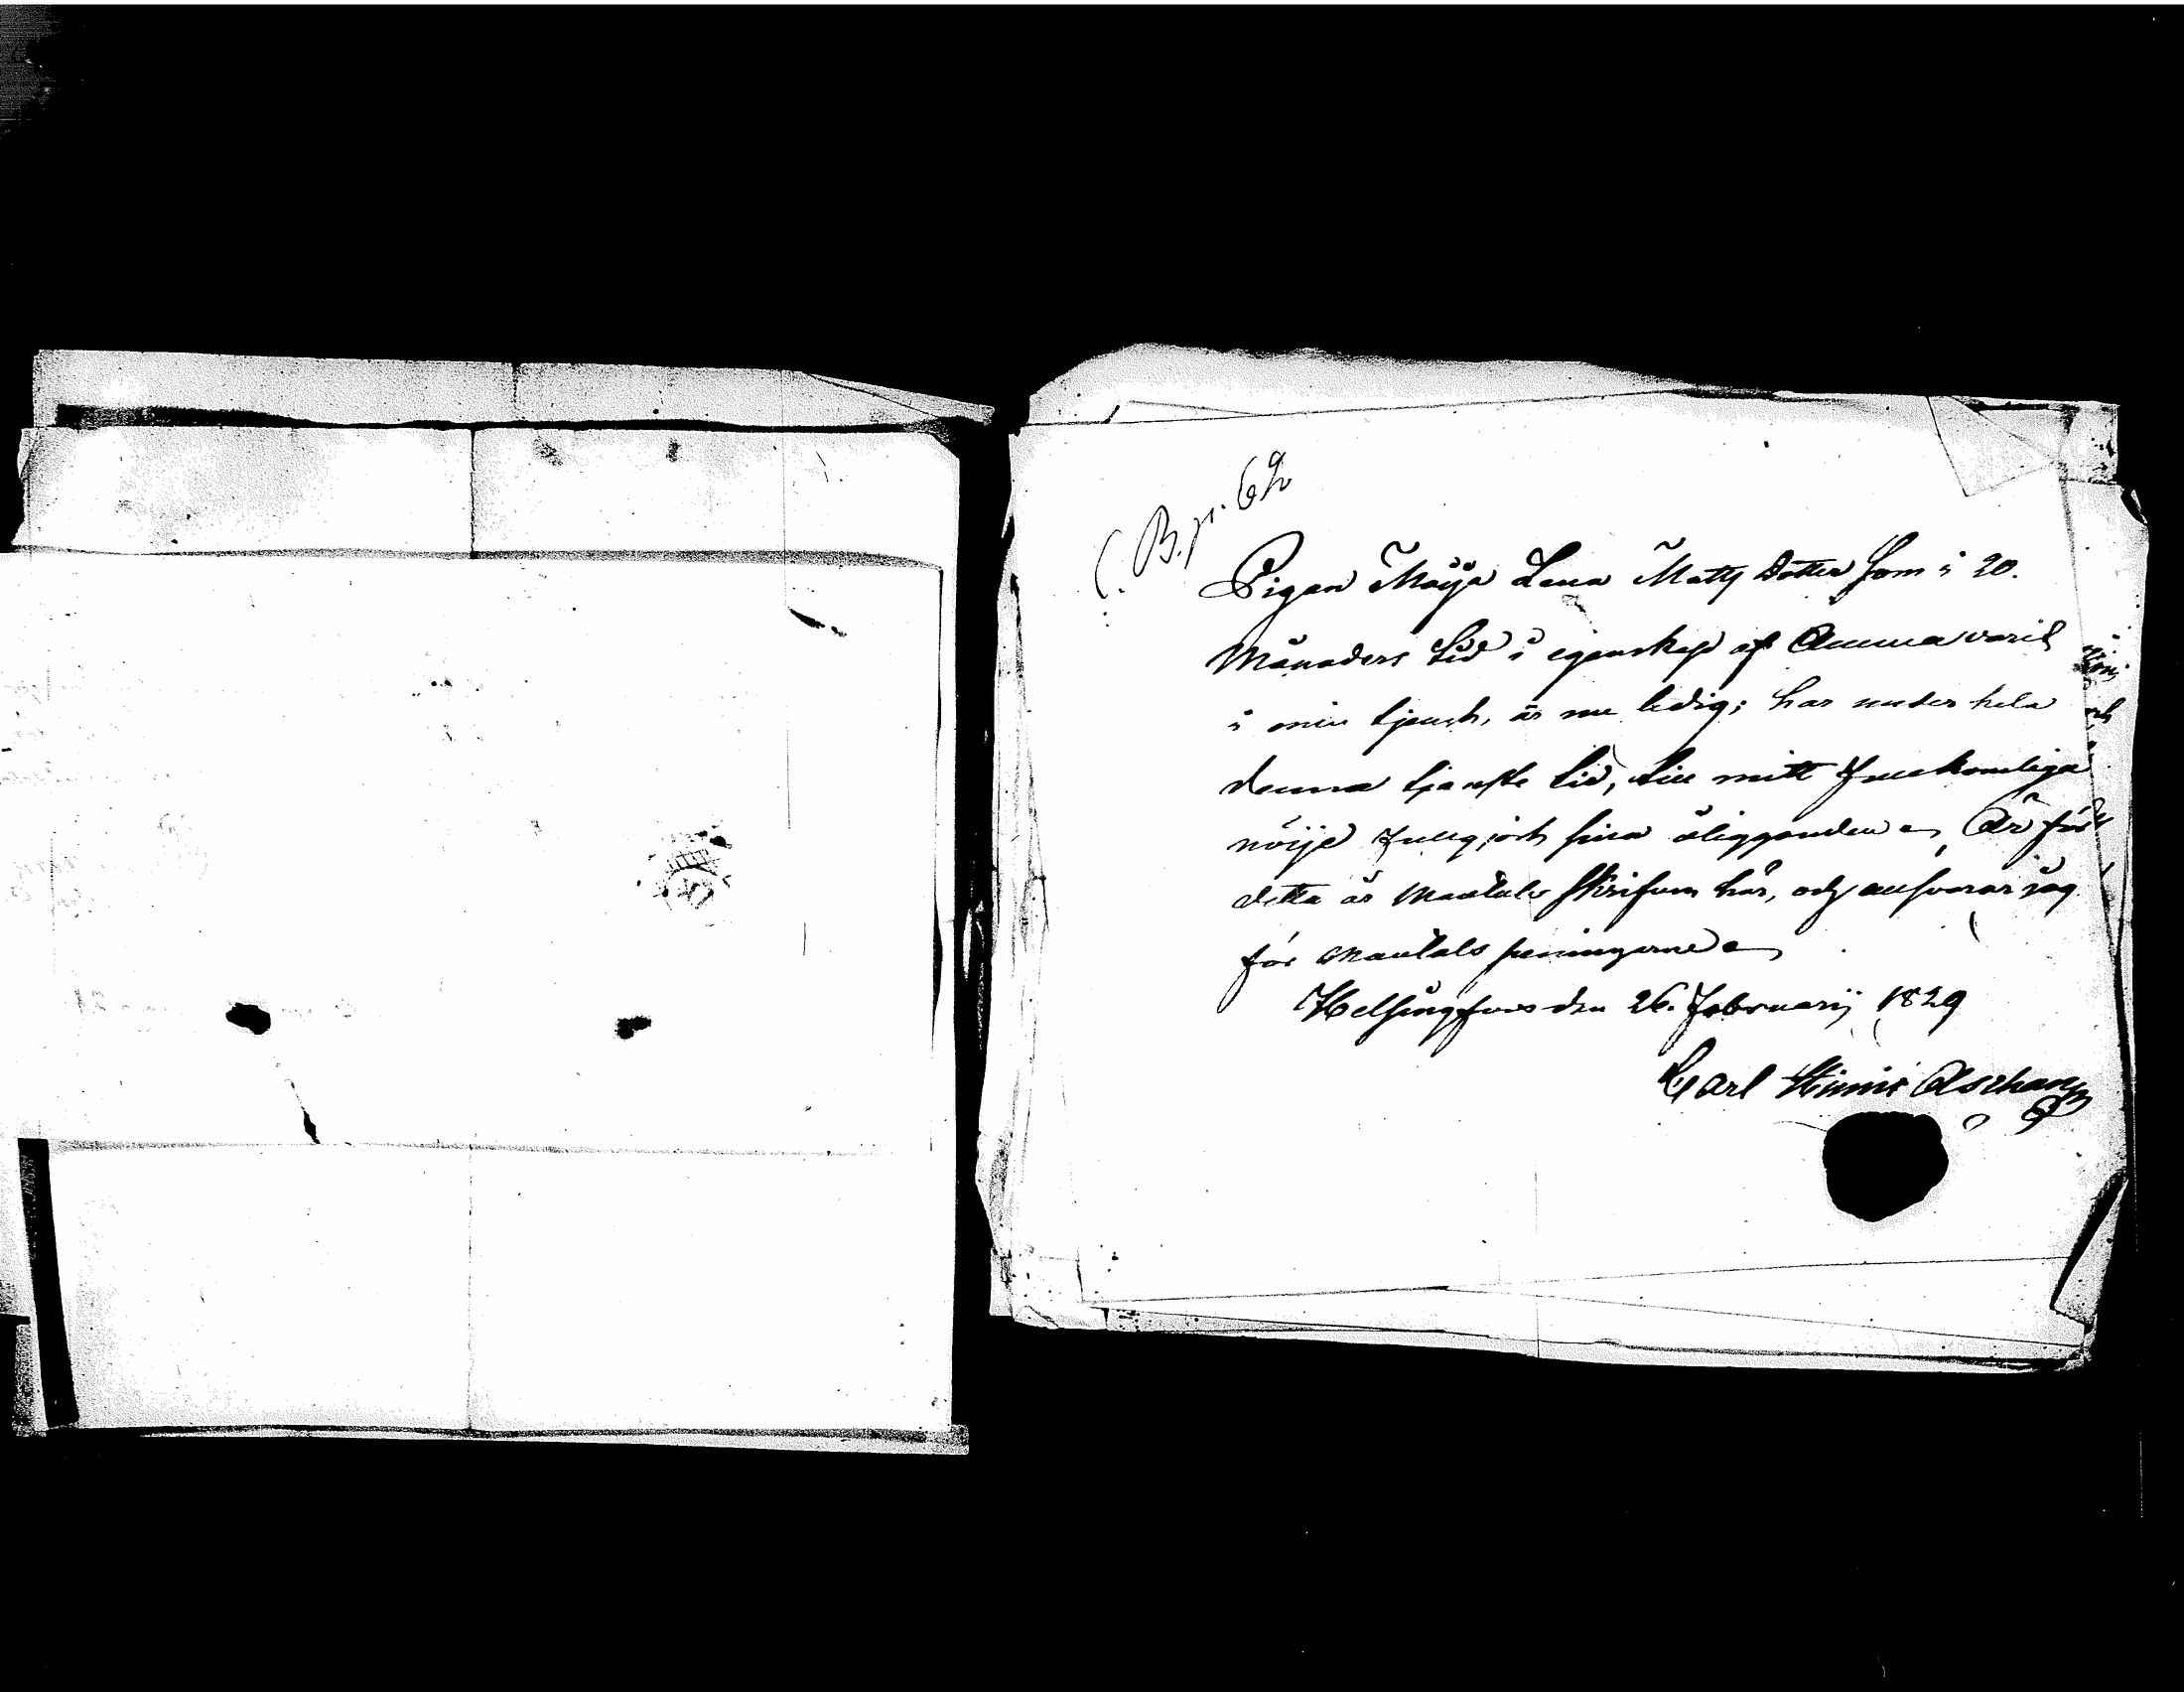 C. B. p. 62
Pigan Maija Lena Matts Dotter som i 20.
Månaders tid i egenskap af Amma varit
i min tjenst, är nu ledig; har under hela
denna tjenste tid, till mitt fullkomliga
nöije fullgjort sina åligganden. För
detta år Mantals skrifven här, och ansvarar jag
för Mantals peningarne
Helsingfors den 26. Februarij 1829
Carl